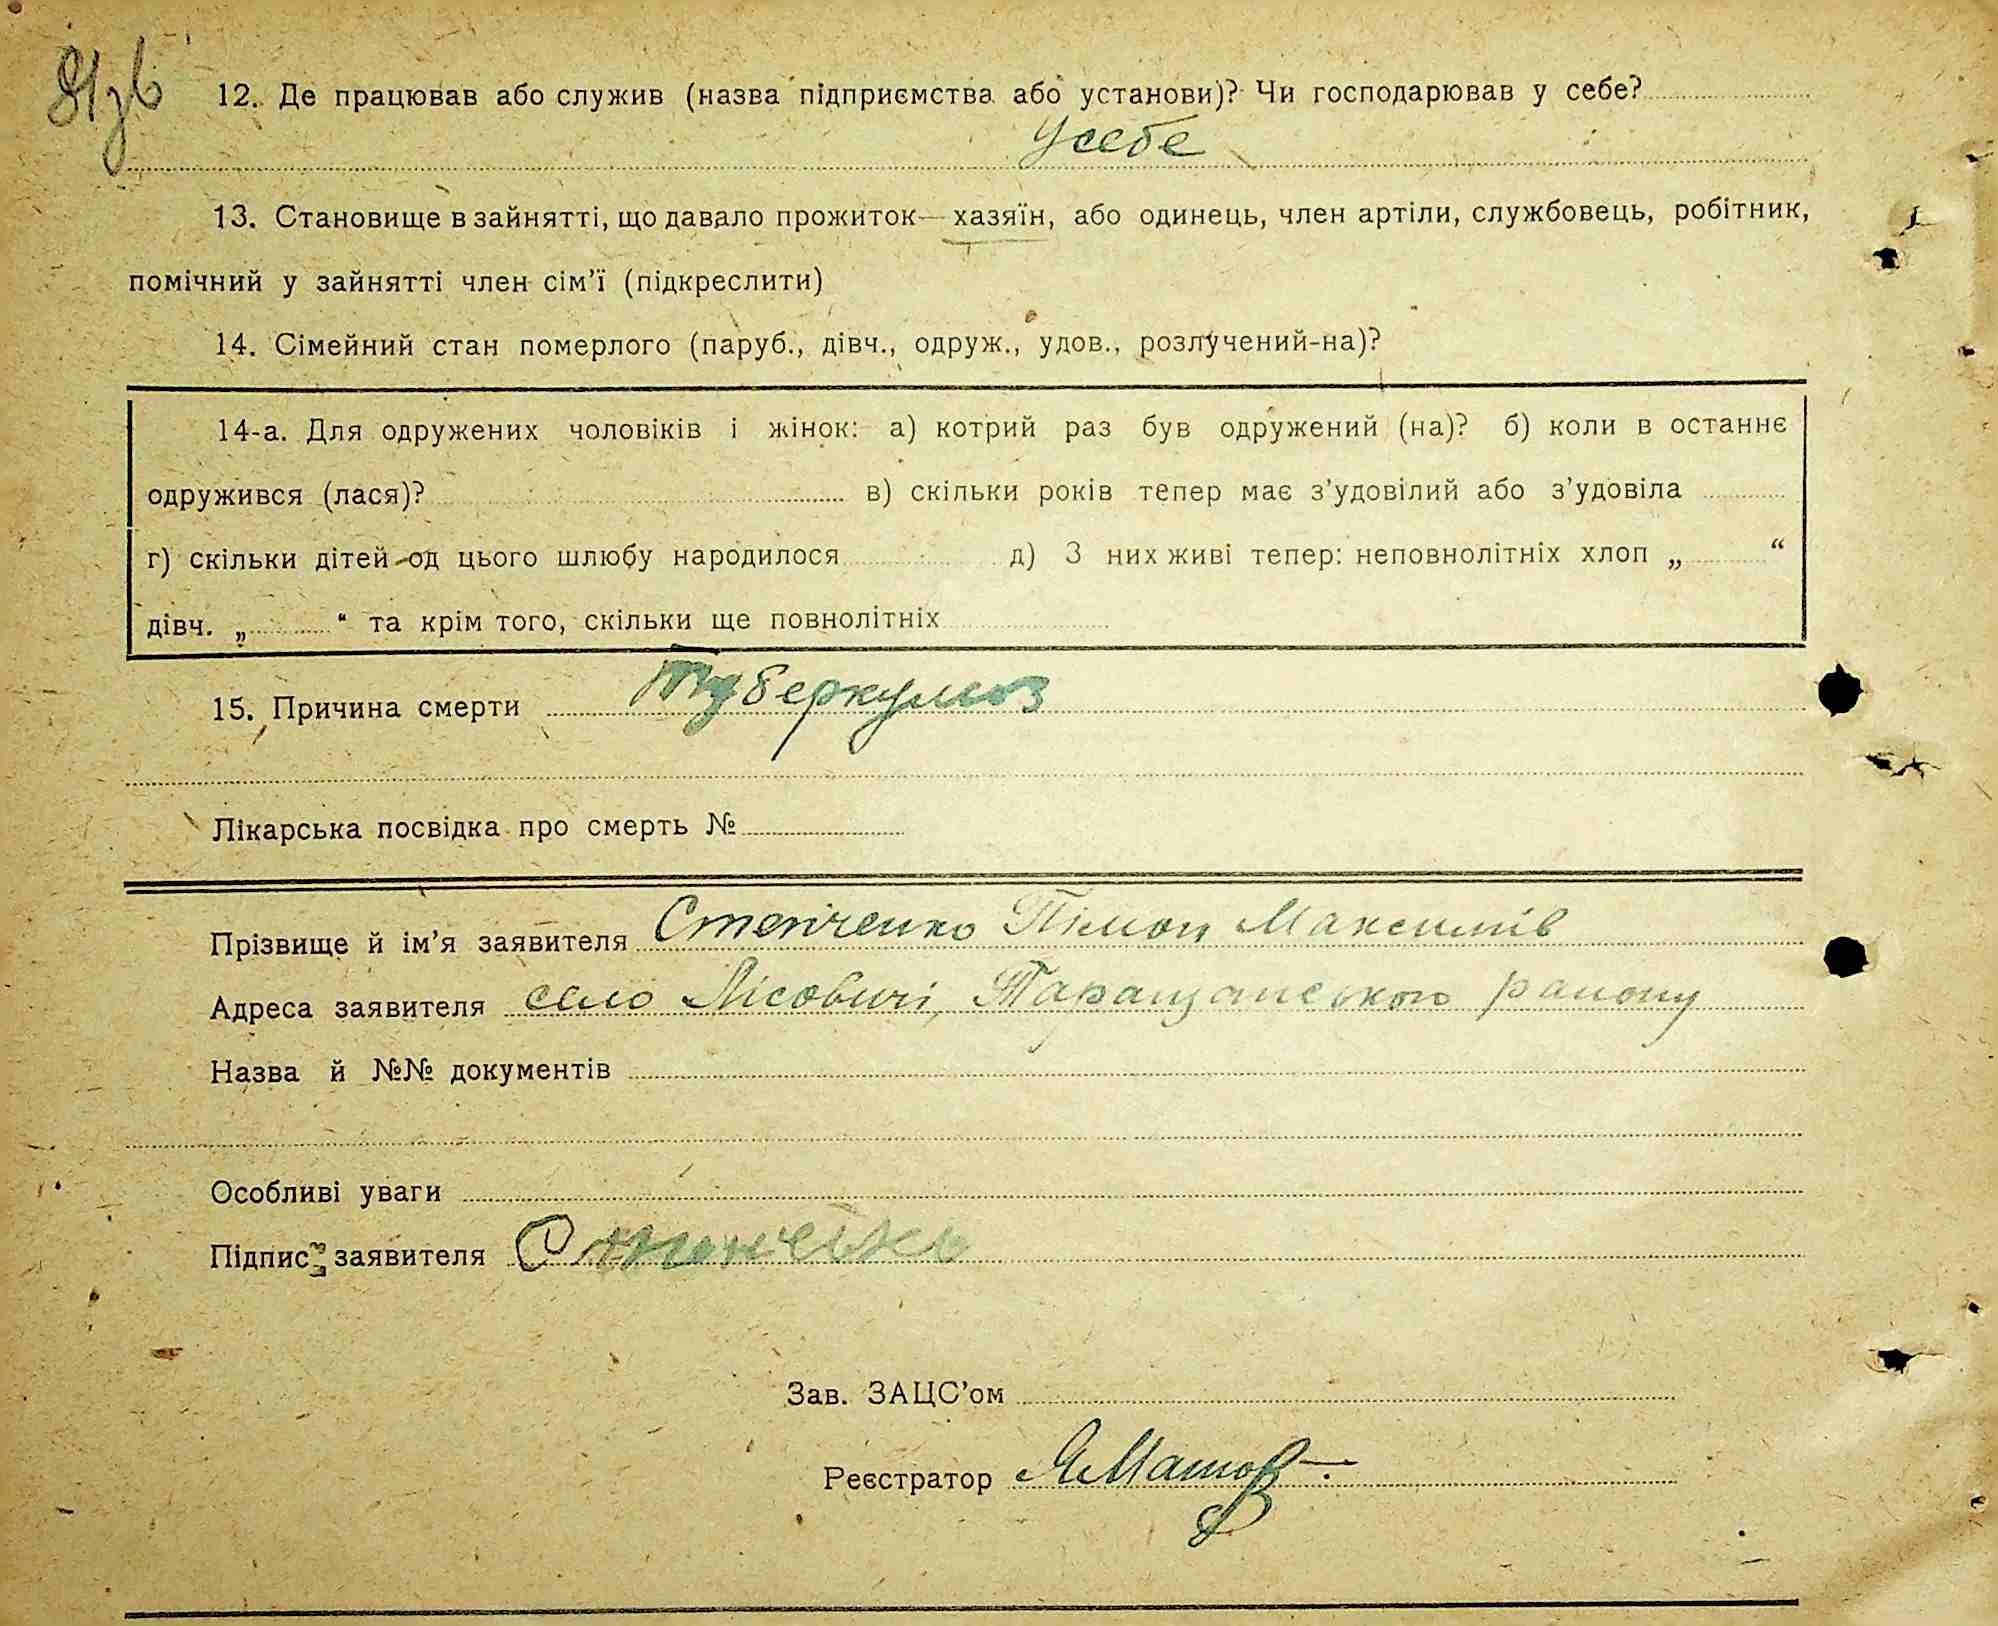 81зв
12. Де працював або служив (назва підприємства або установи)? Чи господарював у себе?
У себе
13. Становище в зайнятті, що давало прожиток—хазяїн, або одинець, член артіли, службовець, робітник,
помічний у зайнятті член сім’ї (підкреслити)
14. Сімейний стан померлого (паруб., дівч., одруж., удов., розлучений-на)?
14-а. Для одружених чоловіків і жінок: а) котрий раз був одружений (на)? б) коли в останнє
одружився (лася)? в) скільки років тепер має з’удовілий або з’удовіла
г) скільки дітей од цього шлюбу народилося д) З них живі тепер: неповнолітніх хлоп „ “
дівч. „ “ та крім того, скільки ще повнолітніх
15. Причина смерти Туберкульоз
Лікарська посвідка про смерть №
Прізвище й ім’я заявителя Степченко Пімон Максимів
Адреса заявителя село Лісовичі, Таращанського району
Назва й №№ документів
Особливі уваги
Підпис заявителя
Зав. ЗАЦС’ом
Реєстратор